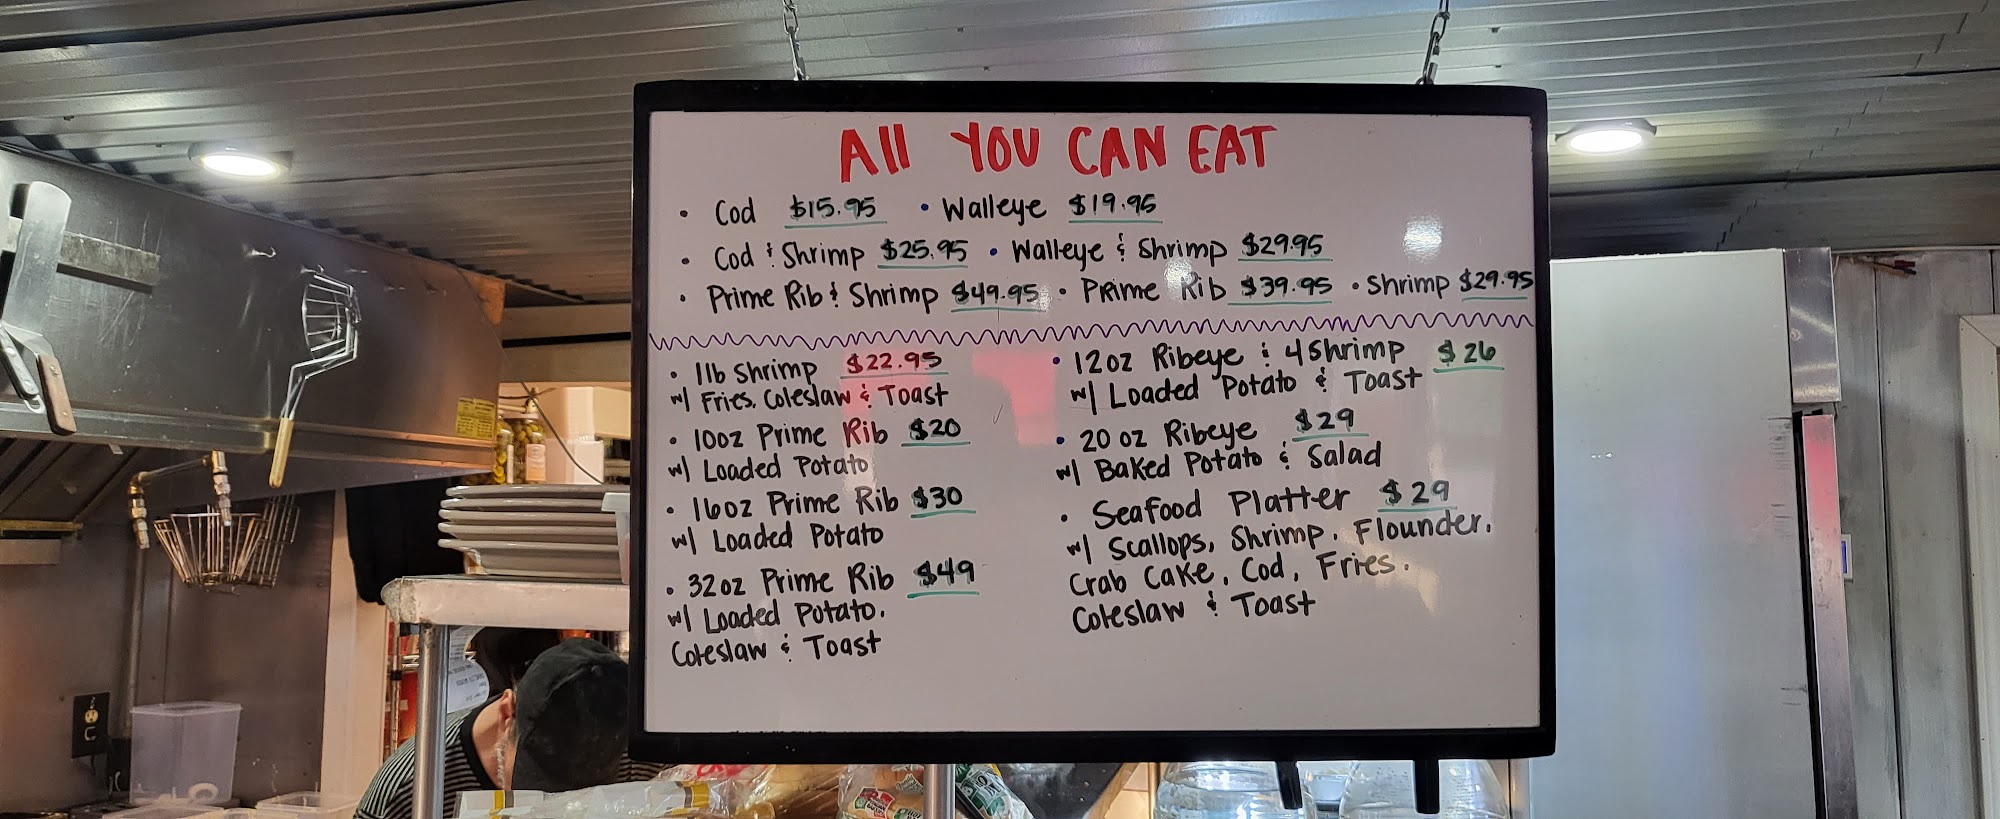 All YOU CAN EAT
• Cod $15.95 • Walleye $19.95
• Cod & Shrimp $25.95 • Walleye & Shrimp $29.95
• Prime Rib & Shrimp $49.95 • Prime Rib $39.95 • Shrimp $29.95
• 1lb Shrimp $22.95
w/ Fries, Coleslaw & Toast
• 10oz Prime Rib $20
w/ Loaded Potato
• 16oz Prime Rib $30
w/ Loaded Potato
• 32oz Prime Rib $49
w/ Loaded Potato,
Coleslaw & Toast
• 12oz Ribeye & 4 Shrimp $26
w/ Loaded Potato & Toast
• 20oz Ribeye $29
w/ Baked Potato & Salad
• Seafood Platter $29
w/ Scallops, Shrimp, Flounder,
Crab Cake, Cod, Fries,
Coleslaw & Toast